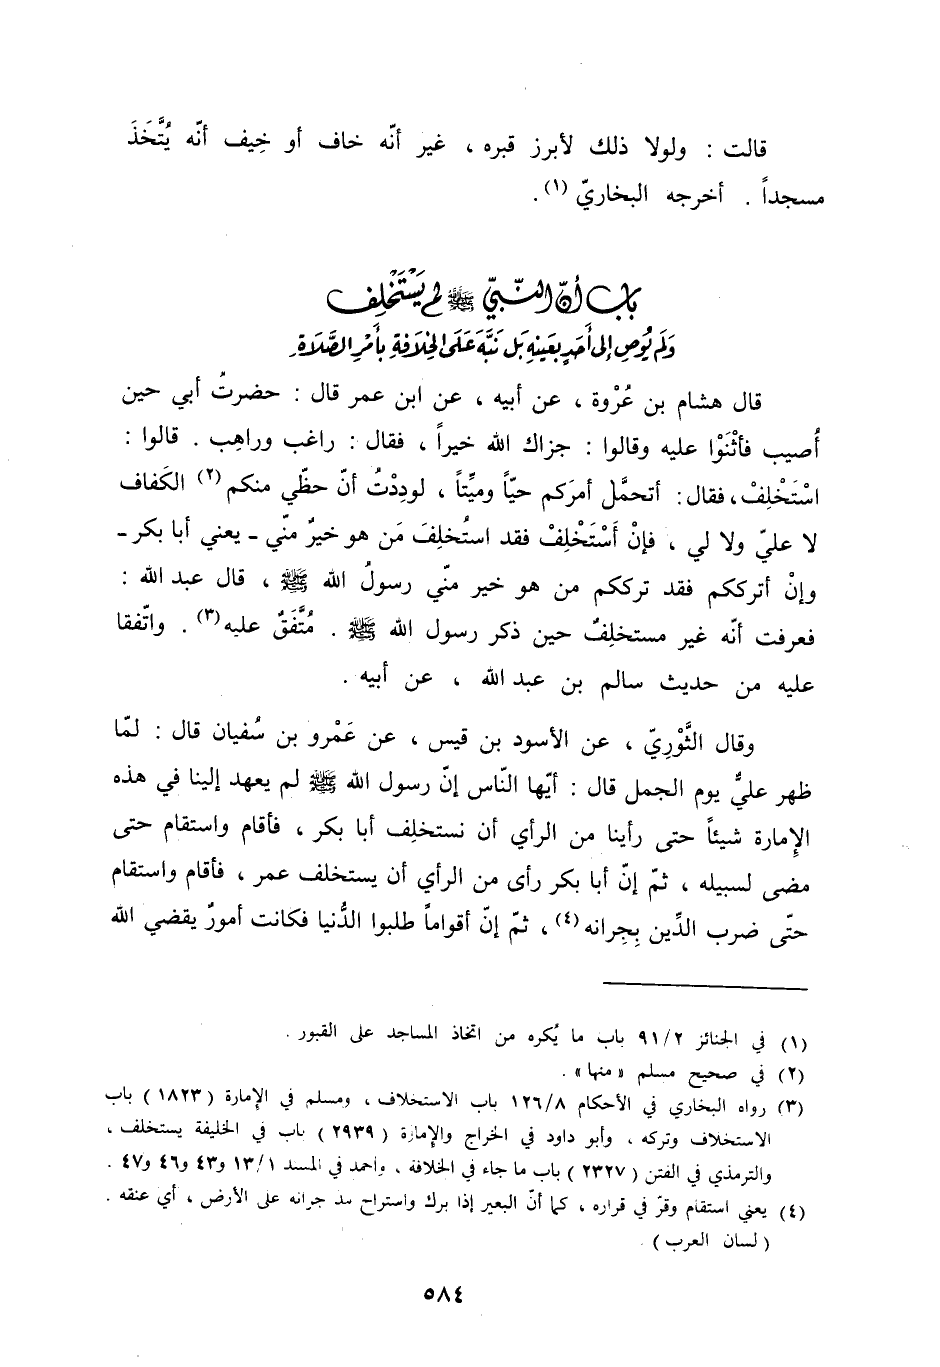 قالت : ولولا ذلك لأبرز قبره ، غير أنّه خاف أو خِيف أنّه يُتَّخَذَ
مسجداً . أخرجه البخاريّ (١) .
باب أنّ النّبيّ ﷺ لم يَسْتَخْلِف
وَلَم يُوصِ إلى أَحَدٍ بعَينِهِ بَل نَبَّهَ عَلَى الخِلَافَةِ بِأَمْرِ الصَّلَاةِ
قال هشام بن عُرْوة ، عن أبيه ، عن ابن عمر قال : حضرتُ أبي حين
أُصيب فأثْنَوْا عليه وقالوا : جزاك الله خيراً ، فقال : راغب وراهِب . قالوا :
اسْتَخْلِفْ ، فقال : أتحمَّل أمرَكم حيّاً وميِّتاً ، لودِدْتُ أنّ حظّي منكم (٢) الكَفاف
لا عليّ ولا لي ، فإنْ أَسْتَخْلِفْ فقد استُخلِفَ مَن هو خيرٌ منّي ـ يعني أبا بكر ـ
وإنْ أترككم فقد ترككم من هو خير منّي رسولُ الله ﷺ ، قال عبد الله :
فعرفت أنّه غير مستخلِفٌ حين ذكر رسول الله ﷺ . مُتَّفَقٌ عليه (٣) . واتّفقا
عليه من حديث سالم بن عبد الله ، عن أبيه .
وقال الثَّوْرِيّ ، عن الأسود بن قيس ، عن عَمْرو بن سُفيان قال : لمّا
ظهر عليٌّ يوم الجمل قال : أيّها النّاس إنّ رسول الله ﷺ لم يعهد إلينا في هذه
الإمارة شيئاً حتى رأينا من الرأي أن نستخلِف أبا بكر ، فأقام واستقام حتى
مضى لسبيله ، ثمّ إنّ أبا بكر رأى من الرأي أن يستخلف عمر ، فأقام واستقام
حتّى ضرب الدِّين بِجِرانه (٤) ، ثمّ إنّ أقواماً طلبوا الدُّنيا فكانت أمورٌ يقضي الله
(١) في الجنائز ٩١/٢ باب ما يُكره من اتخاذ المساجد على القبور .
(٢) في صحيح مسلم «منها» .
(٣) رواه البخاري في الأحكام ١٢٦/٨ باب الاستخلاف ، ومسلم في الإمارة (١٨٢٣) باب
الاستخلاف وتركه ، وأبو داود في الخراج والإمارة (٢٩٣٩) باب في الخليفة يستخلف ،
والترمذي في الفتن (٢٣٢٧) باب ما جاء في الخلافة ، وأحمد في المسند ١٣/١ و٤٣ و٤٦ و٤٧ .
(٤) يعني استقام وقرّ في قراره ، كما أنّ البعير إذا برك واستراح مدّ جرانه على الأرض ، أي عنقه .
(لسان العرب) .
٥٨٤